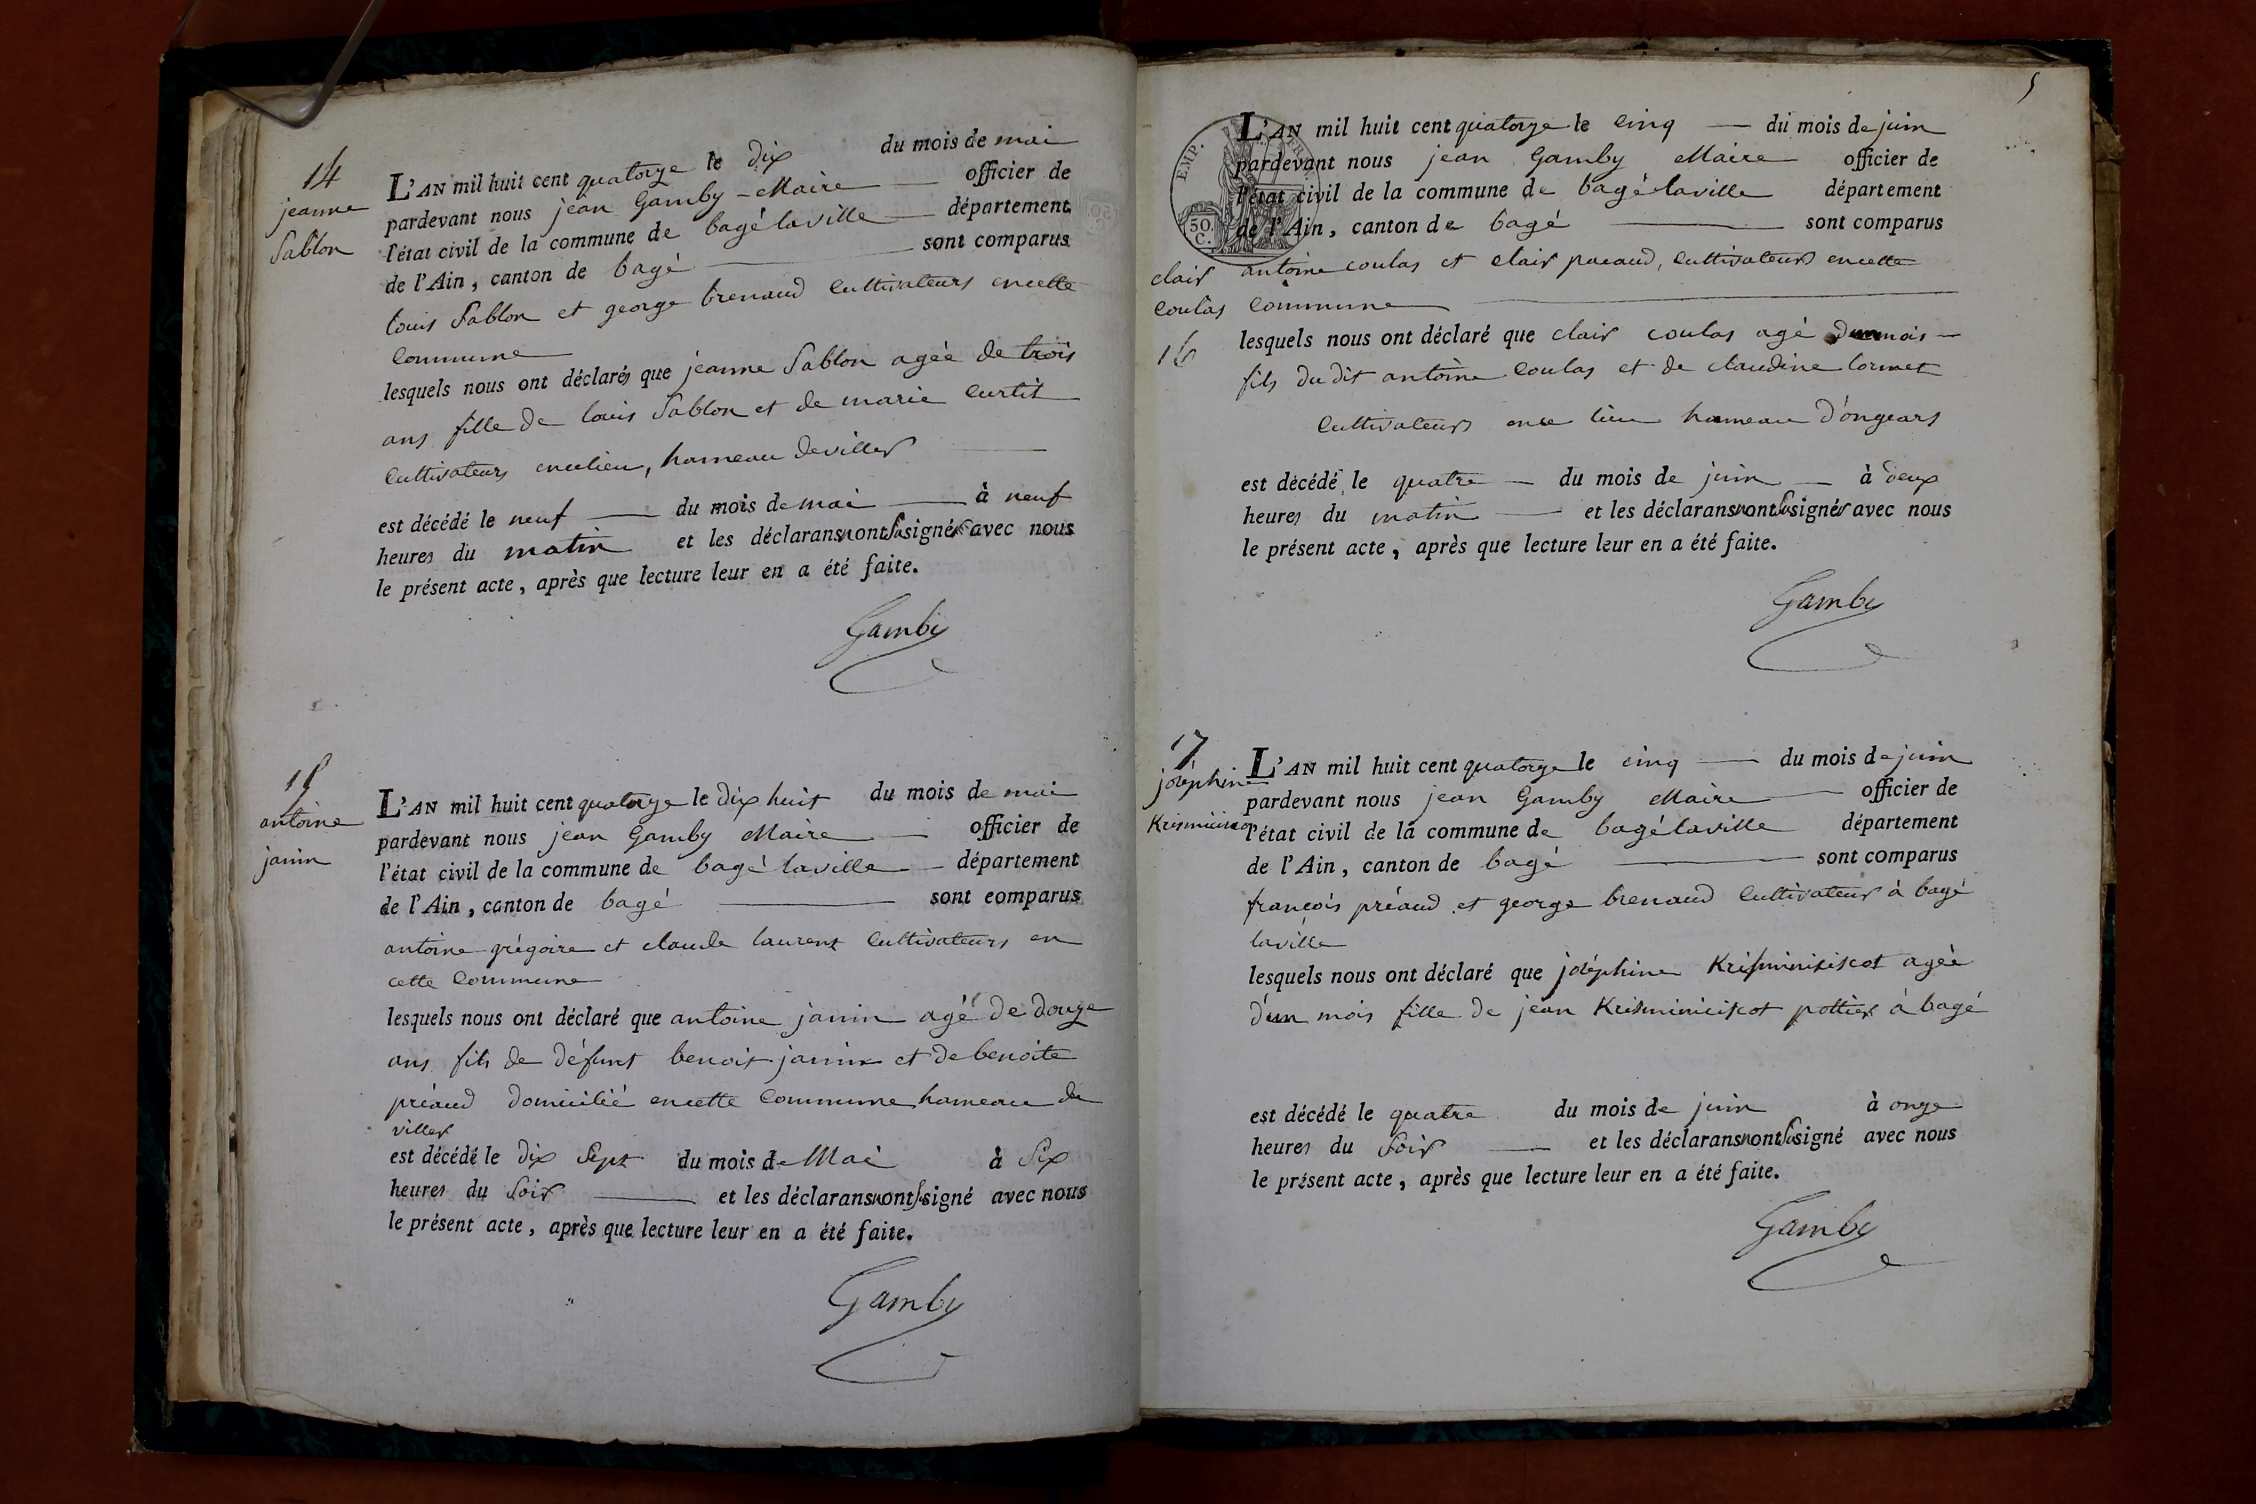 14
jeanne
Sablon
L'AN mil huit cent quatorze le dix du mois de mai
pardevant nous jean Gamby Maire officier de
l'état civil de la commune de bagé laville département
de l'Ain, canton de bagé sont comparus
louis Sablon et george brenaud cultivateurs encette
commune
lesquels nous ont déclarés que jeanne Sablon agée de trois
ans fille de louis Sablon et de marie curtil
cultivateurs encelieu, hameau deviller
est décédé le neuf du mois de mai à neuf
heures du matin et les déclarans n'ont su signér avec nous
le présent acte, après que lecture leur en a été faite.
Gamby
15
antoine
janin
L'AN mil huit cent quatorze le dix huit du mois de mai
pardevant nous jean Gamby Maire officier de
l'état civil de la commune de bagé laville département
de l'Ain, canton de bagé sont comparus
antoine grégoire et claude laurent cultivateurs en
cette commune
lesquels nous ont déclaré que antoine janin agé de douze
ans fils de défunt benoit janin et de benoite
préaud domicilié encette commune hameau de
viller
est décédé le dix sept du mois de Mai à six
heures du soir et les déclarans n'ont su signé avec nous
le présent acte, après que lecture leur en a été faite.
Gamby
5
EMP. FR.
50.
C.
L'AN mil huit cent quatorze le cinq du mois de juin
pardevant nous jean Gamby Maire officier de
l'état civil de la commune de bagé laville département
de l'Ain, canton de bagé sont comparus
clair
coulas
16
antoine coulas et clair pacaud, cultivateurs encette
commune
lesquels nous ont déclaré que clair coulas agé dunmois
fils dudit antoine coulas et de claudine cormet
cultivateurs ence lieu hameau d'ongears
est décédé le quatre du mois de juin à deux
heures du matin et les déclarans n'ont su signér avec nous
le présent acte, après que lecture leur en a été faite.
Gamby
17
joséphine
L'AN mil huit cent quatorze le cinq du mois de juin
pardevant nous jean Gamby Maire officier de
l'état civil de la commune de bagé laville département
de l'Ain, canton de bagé sont comparus
francois préaud et george brenaud cultivateur à bagé
laville
lesquels nous ont déclaré que joséphine agée
d'un mois fille de jean pottier à bagé
est décédé le quatre du mois de juin à onze
heures du soir et les déclarans n'ont su signé avec nous
le présent acte, après que lecture leur en a été faite.
Gamby